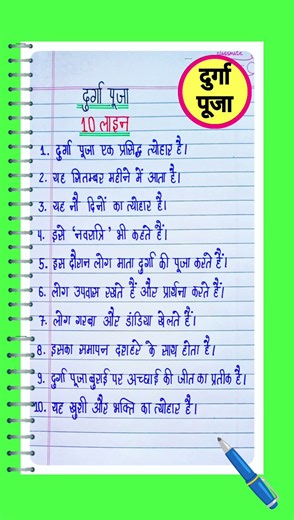 classmate
दुर्गा
पूजा
दुर्गा पूजा
10 लाइन
1. दुर्गा पूजा एक प्रसिद्ध त्योहार है।
2. यह सितम्बर महीने में आता है।
3. यह नौ दिनों का त्योहार है।
4. इसे 'नवरात्रि' भी कहते हैं।
5. इस दौरान लोग माता दुर्गा की पूजा करते हैं।
6. लोग उपवास रखते हैं और प्रार्थना करते हैं।
7. लोग गरबा और डांडिया खेलते हैं।
8. इसका समापन दशहरे के साथ होता है।
9. दुर्गा पूजा बुराई पर अच्छाई की जीत का प्रतीक है।
10. यह खुशी और भक्ति का त्योहार है।